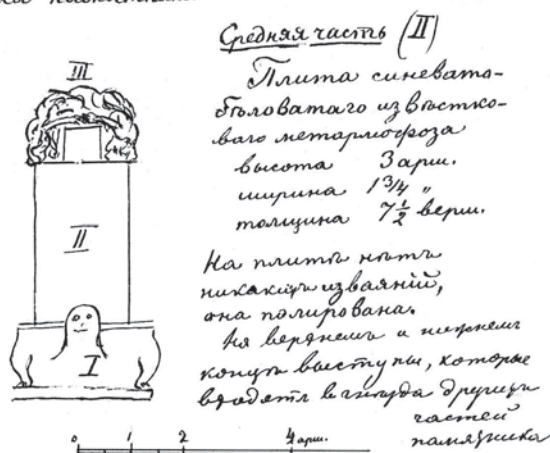 Средняя часть (II)
III
Плита синевато-
бѣловатаго известко-
ваго метарморфоза
высота 3 арш.
ширина 1 3/4 "
толщина 7 1/2 верш.
II
На плитѣ нѣтъ
никакихъ изваянiй,
она полирована.
На верхнемъ и нижнемъ
I
концѣ выступы, которые
входятъ в гнезда другихъ
частей
памятника
0 1 2 4 арш.